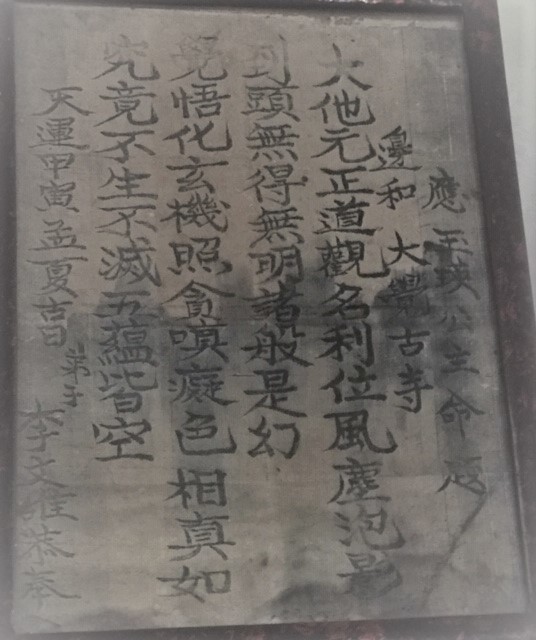 應玉瑛公主命題
邊和 大覺古寺
大他元正道觀名利位風塵泡影
到頭無得無明諸般是幻
覺悟化玄機照貪嗔癡色相真如
究竟不生不滅五蘊皆空
天運甲寅孟夏吉日
弟子 李文維恭奉